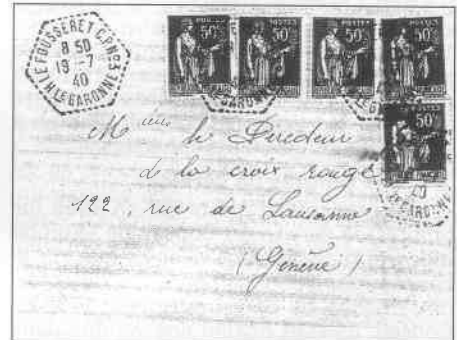 LE FOUSSERET C.P.N°3
8 50
19 - 7
40
HTE GARONNE
POSTES
50c
POSTES
50c
POSTES
50c
POSTES
50c
50c
GARONNE
40
GARONNE
le Directeur
de la croix rouge
122, rue de Lausanne
(Genève)